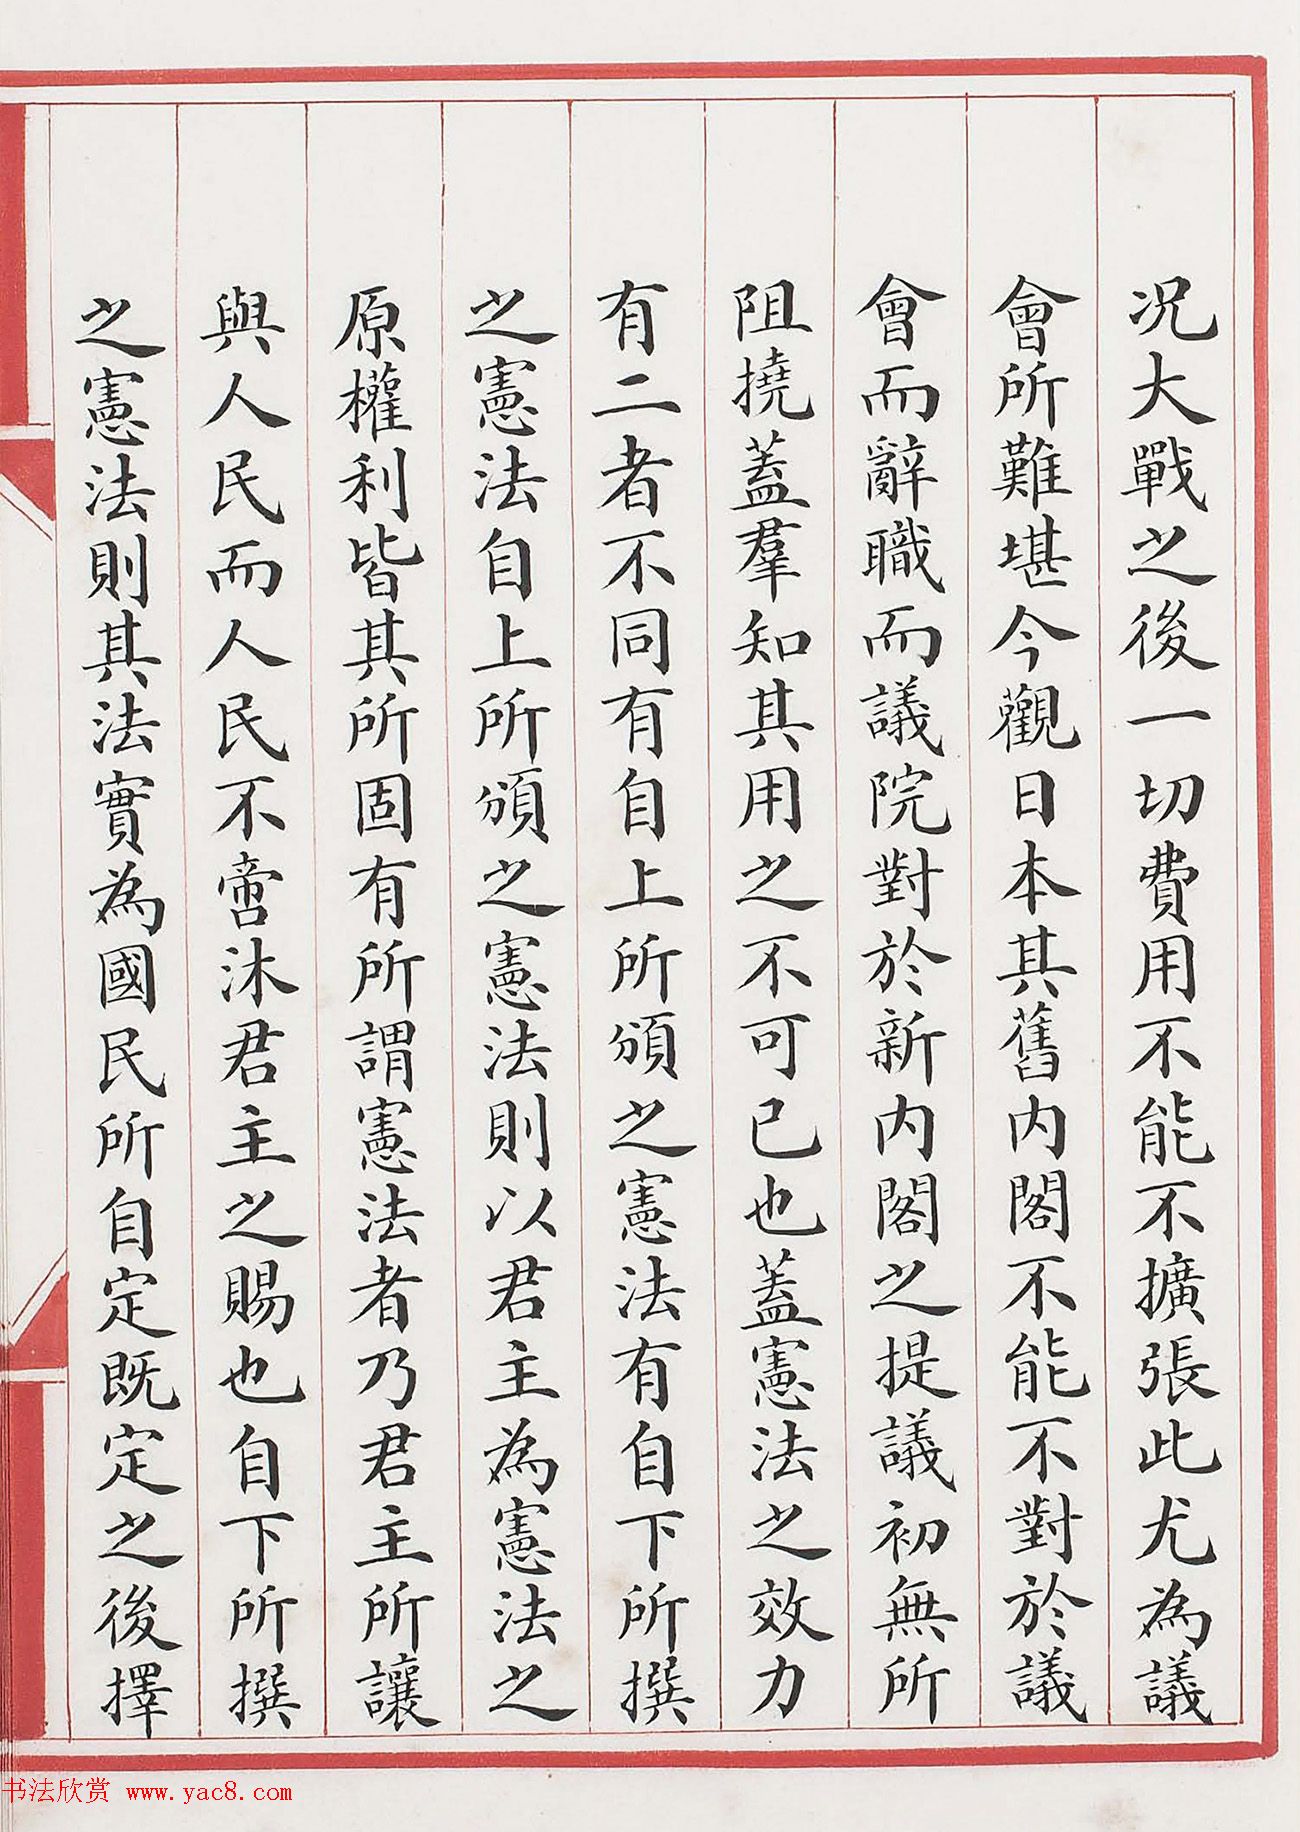 况大戰之後一切費用不能不擴張此尤為議
會所難堪今觀日本其舊内閣不能不對於議
會而辭職而議院對於新内閣之提議初無所
阻撓蓋羣知其用之不可已也蓋憲法之效力
有二者不同有自上所頒之憲法有自下所撰
之憲法自上所頒之憲法則以君主為憲法之
原權利皆其所固有所謂憲法者乃君主所讓
與人民而人民不啻沐君主之賜也自下所撰
之憲法則其法實為國民所自定既定之後擇
书法欣赏 www.yac8.com